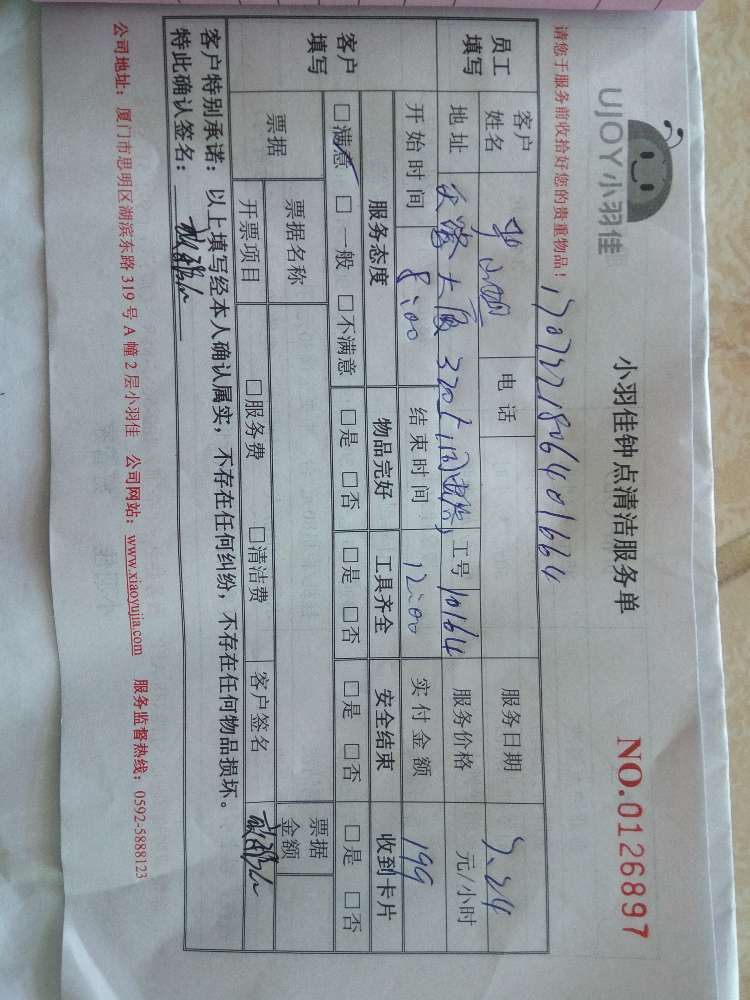 UJOY小羽佳
小羽佳钟点清洁服务单
NO.0126897
请您于服务前收拾好您的贵重物品！
员工填写
客户姓名
电话
服务日期 7.24
地址
工号 10164
服务价格 元/小时
开始时间 8:00 结束时间 12:00 实付金额 199
客户填写
服务态度 物品完好 工具齐全 安全结束 收到卡片
□满意 □一般 □不满意 □是 □否 □是 □否 □是 □否 □是 □否
票据
票据名称
票据金额
开票项目 □服务费 □清洁费 客户签名
客户特别承诺：以上填写经本人确认属实，不存在任何纠纷，不存在任何物品损坏。
特此确认签名：
公司地址：厦门市思明区湖滨东路 319 号 A 幢 2 层小羽佳 公司网站：www.xiaoyujia.com 服务监督热线：0592-5888123